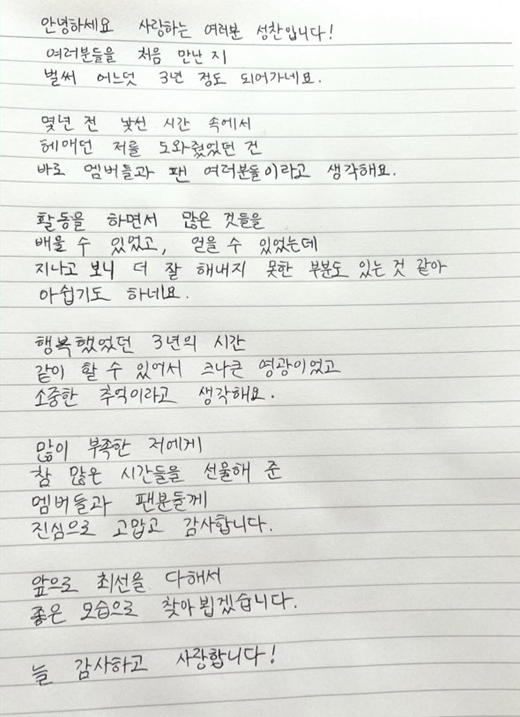 안녕하세요 사랑하는 여러분 성찬입니다!
여러분들을 처음 만난 지
벌써 어느덧 3년 정도 되어가네요.
몇년 전 낯선 시간 속에서
헤매던 저를 도와줬었던 건
바로 멤버들과 팬 여러분들이라고 생각해요.
활동을 하면서 많은 것들을
배울 수 있었고, 얻을 수 있었는데
지나고 보니 더 잘 해내지 못한 부분도 있는 것 같아
아쉽기도 하네요.
행복했었던 3년의 시간
같이 할 수 있어서 크나큰 영광이었고
소중한 추억이라고 생각해요.
많이 부족한 저에게
참 많은 시간들을 선물해 준
멤버들과 팬분들께
진심으로 고맙고 감사합니다.
앞으로 최선을 다해서
좋은 모습으로 찾아뵙겠습니다.
늘 감사하고 사랑합니다!